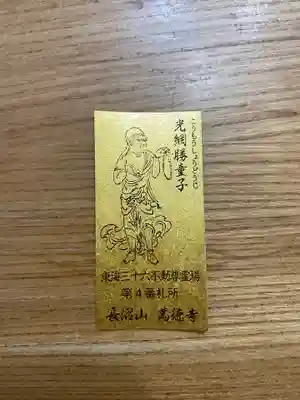 光網勝童子
こうもうしょうどうじ
東海三十六不動尊霊場
第4番札所
長沼山 萬徳寺